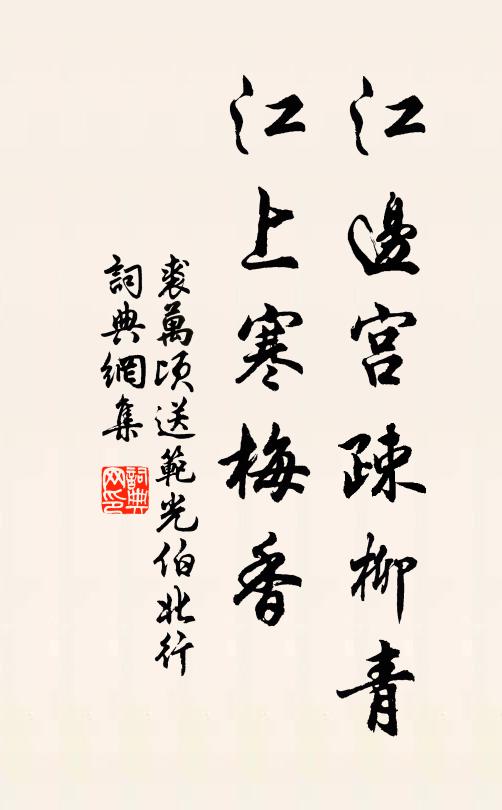 江邊宮疎柳青
江上寒梅香
裘萬頃送範光伯北行
詞典網集
詞典網印